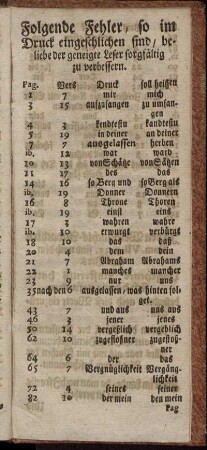 Folgende Fehler, so im
Druck eingeschlichen sind, be-
liebe der geneigte Leser sorgfältig
zu verbessern.
Pag. Vers Druck soll heißen
1 7 mir mich
3 15 auszusangen zu umfan-
gen
4 3 kendtestu kandtestu
5 19 in deiner an deiner
7 7 ausgelassen herben
ib. 12 war ward
10 13 von Schätze von Sätzen
11 17 des das
14 16 so Berg und so Berg als
ib. 19 Donner Donnern
16 8 Throne Thoren
ib. 19 einst eins
17 3 wahren wahre
ib. 10 erwurgt verbürgt
18 10 das daß
20 4 dem dein
21 7 Abraham Abrahams
22 1 manches mancher
23 9 nur uns
35 nach den 6 ausgelassen, was hinten fol-
get.
43 7 und aus uns aus
46 3 jener jenes
50 14 vergeßlich vergeblich
62 10 zugestoßner zugestoß-
ner
64 6 der das
65 7 Vergnüglichkeit Vergäng-
lichkeit
72 4 seines seiner
82 10 der mein den mein
Pag